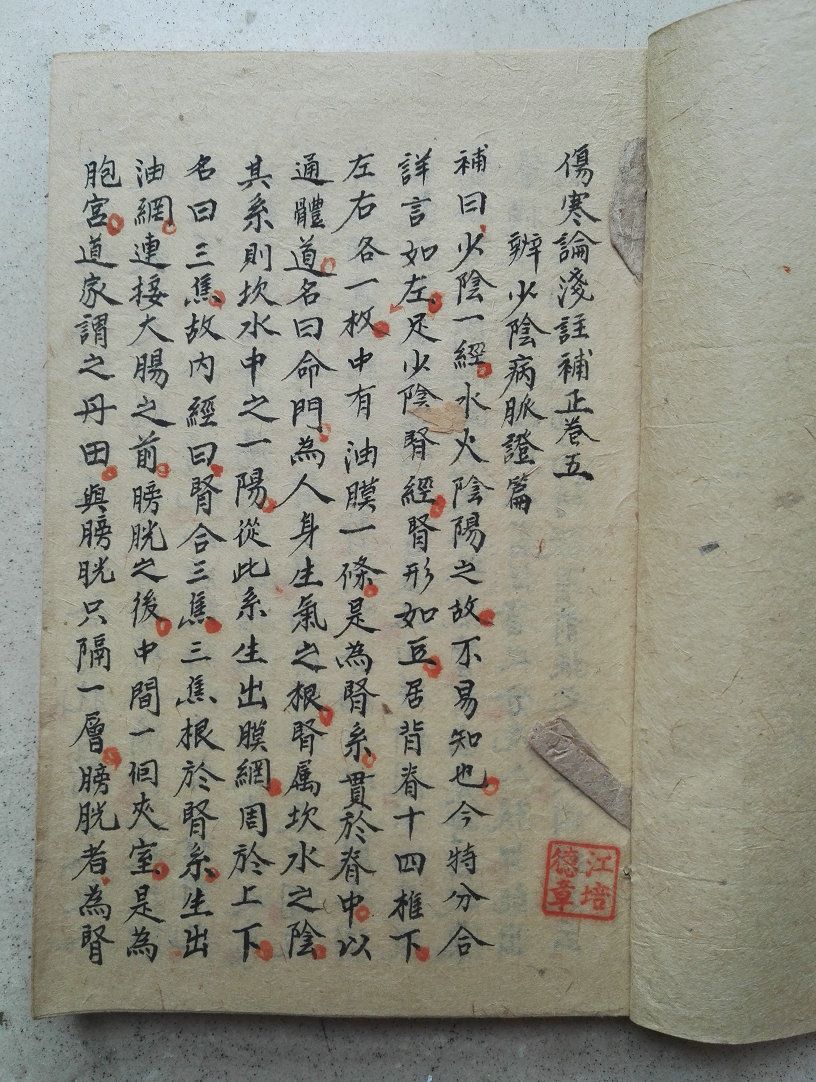 傷寒論淺註補正卷五
辨少陰病脈證篇
補曰少陰一經水火陰陽之故不易知也今特分合
詳言如左足少陰腎經腎形如豆居背脊十四椎下
左右各一枚中有油膜一條是為腎系貫於脊中以
通體道名曰命門為人身生氣之根腎屬坎水之陰
其系則坎水中之一陽從此系生出膜網周於上下
名曰三焦故內經曰腎合三焦三焦根於腎系生出
油網連接大腸之前膀胱之後中間一個夾室是為
胞宮道家謂之丹田與膀胱只隔一層膀胱者為腎
江培
德章